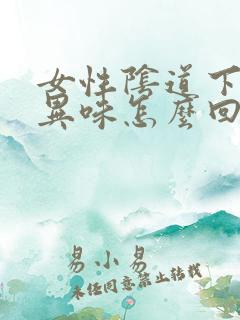 女性陰道下
異味怎麼回
易小易
未经同意禁止转载